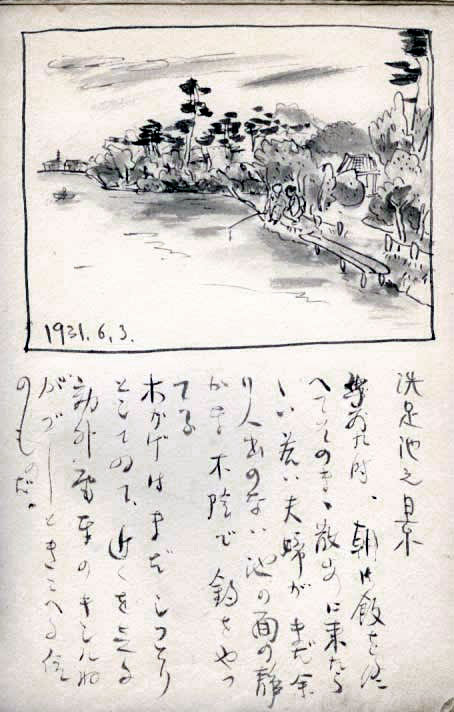 1931.6.3.
洗足池之景
午前九時、朝御飯を終
へてそのまゝ散歩に来たら
しい若い夫婦が、まだ余
り人出のない池の面の静
かな木陰で釣をやつ
てる
木かげはまだしつとり
としてゐて、近くを走る
郊外電車のキシルね
がゴーときこへる位
のものだ。